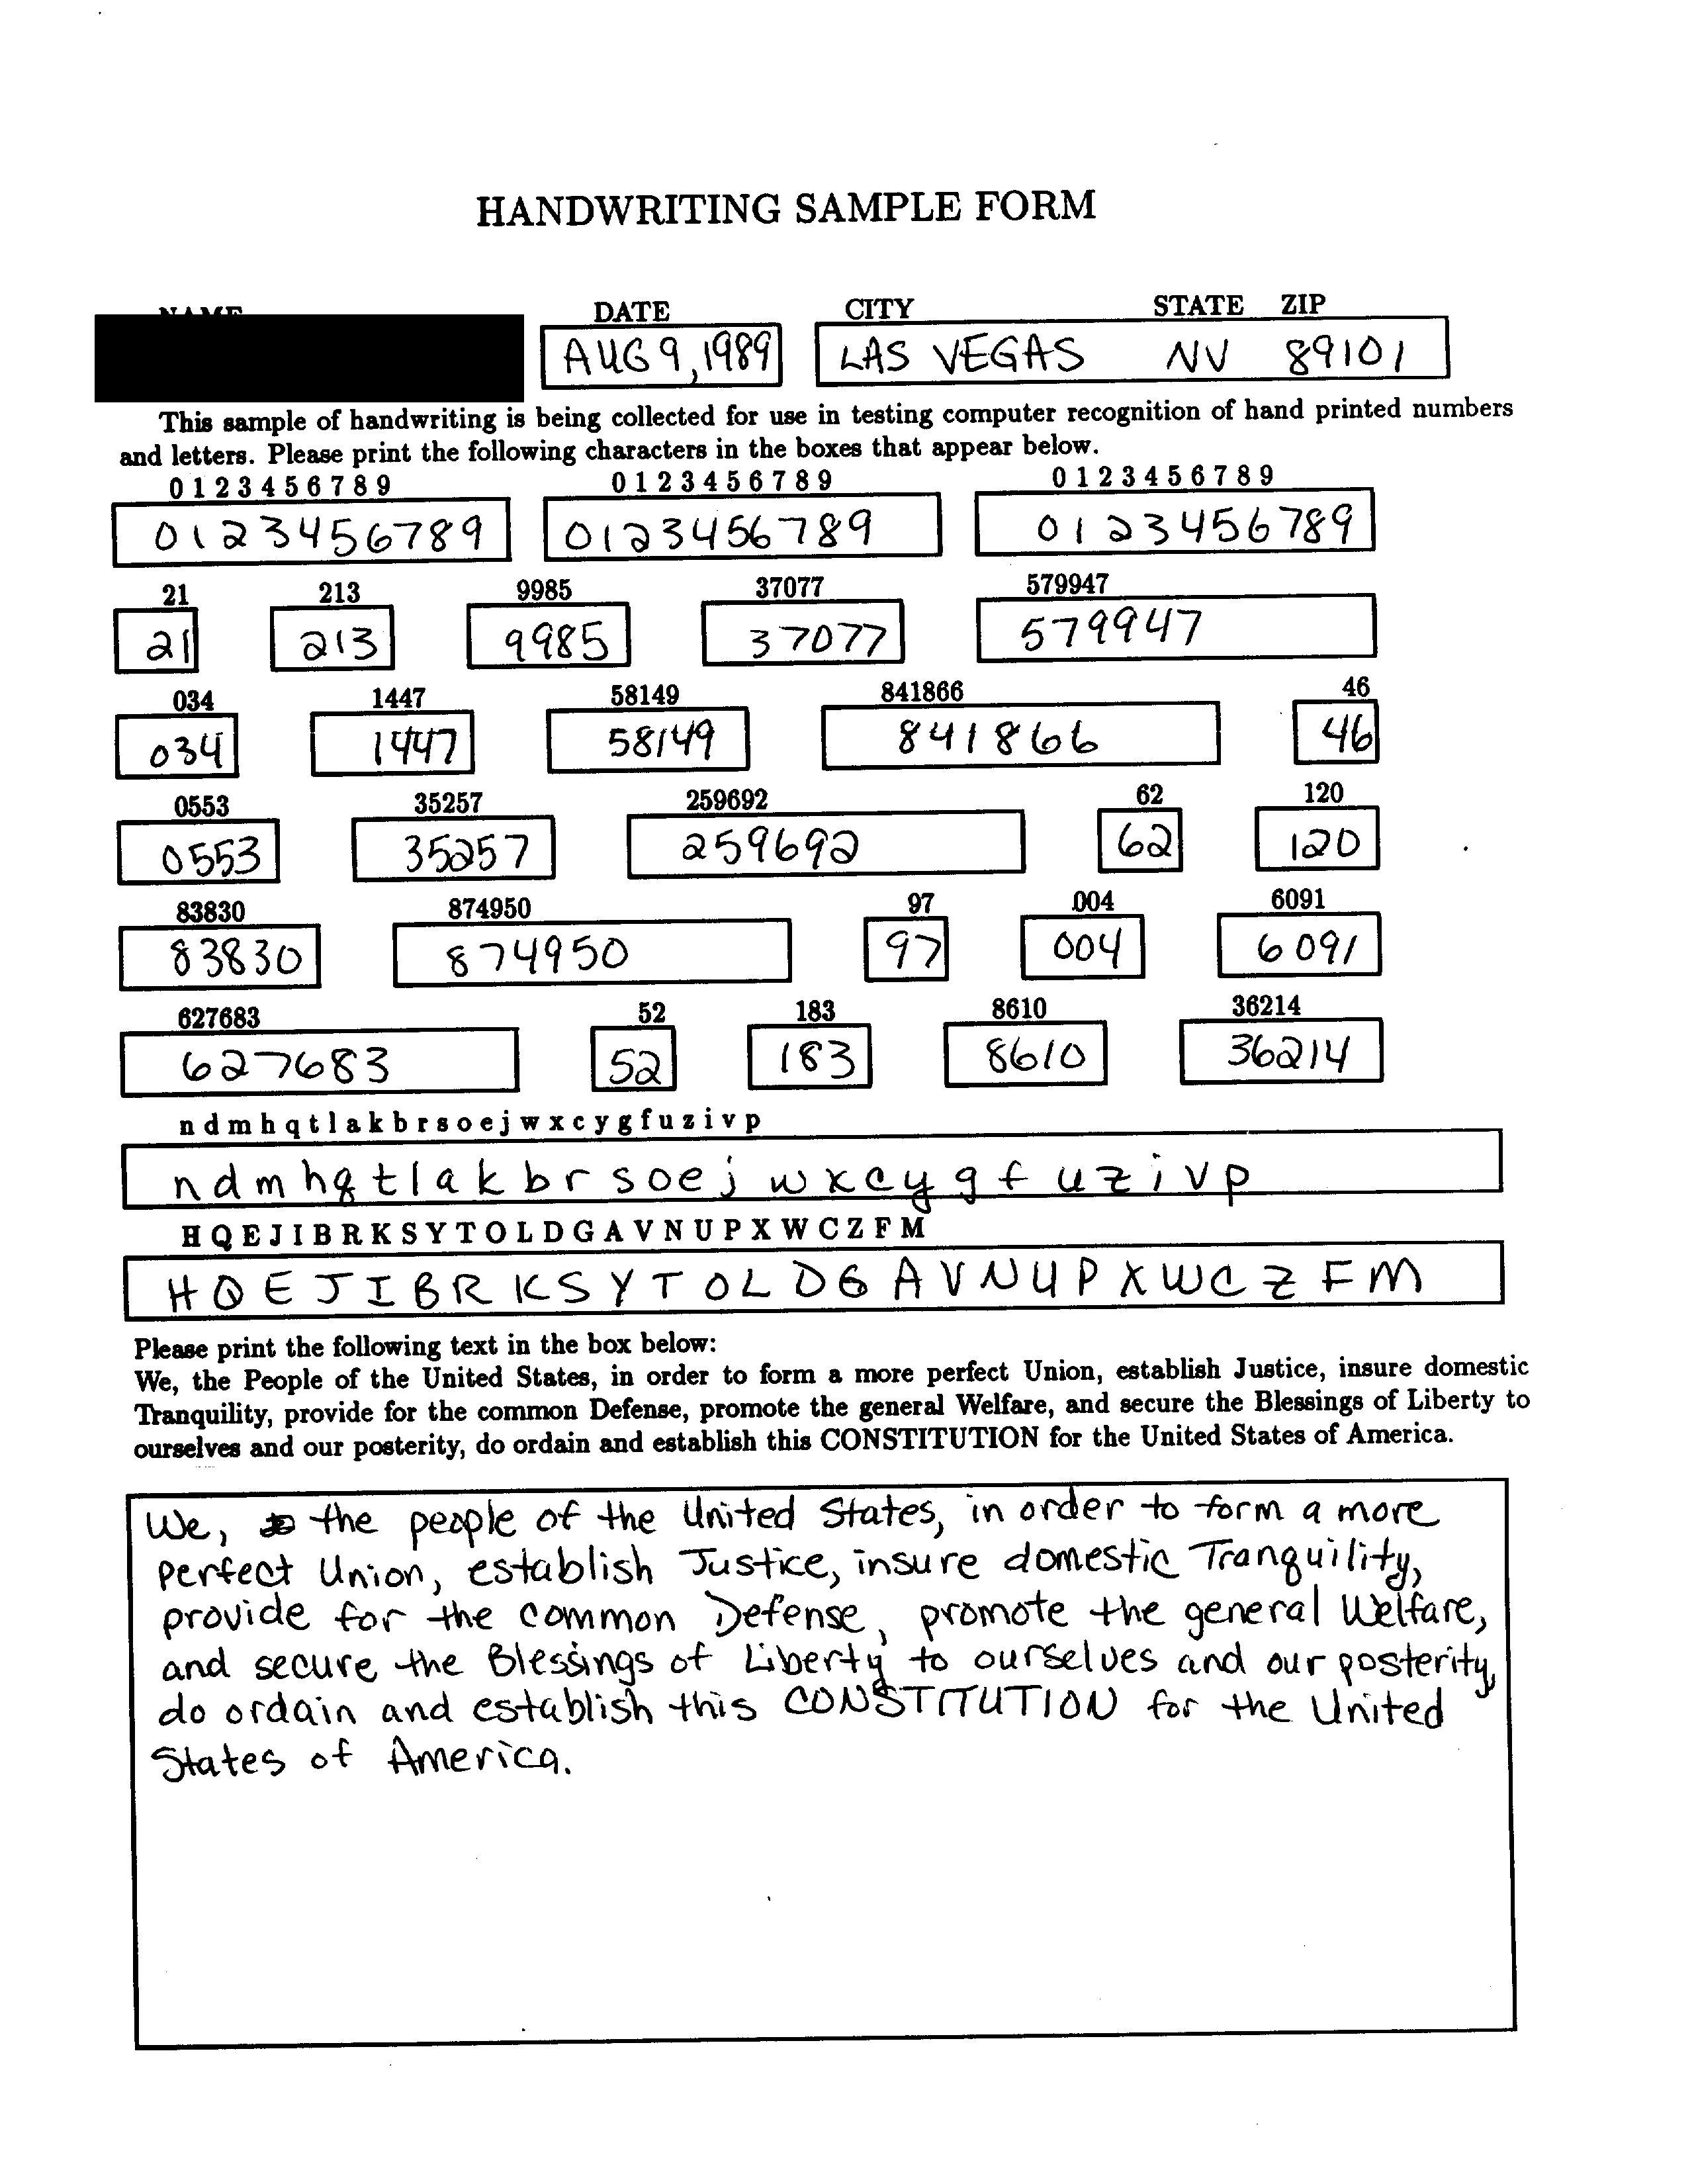 HANDWRITING SAMPLE FORM
DATE CITY STATE ZIP
AUG 9, 1989 LAS VEGAS NV 89101
This sample of handwriting is being collected for use in testing computer recognition of hand printed numbers
and letters. Please print the following characters in the boxes that appear below.
0 1 2 3 4 5 6 7 8 9 0 1 2 3 4 5 6 7 8 9 0 1 2 3 4 5 6 7 8 9
0123456789 0123456789 0123456789
21 213 9985 37077 579947
21 213 9985 37077 579947
034 1447 58149 841866 46
034 1447 58149 841866 46
0553 35257 259692 62 120
0553 35257 259692 62 120
83830 874950 97 004 6091
83830 874950 97 004 6091
627683 52 183 8610 36214
627683 52 183 8610 36214
n d m h q t l a k b r s o e j w x c y g f u z i v p
n d m h q t l a k b r s o e j w x c y g f u z i v p
H Q E J I B R K S Y T O L D G A V N U P X W C Z F M
H Q E J I B R K S Y T O L D G A V N U P X W C Z F M
Please print the following text in the box below:
We, the People of the United States, in order to form a more perfect Union, establish Justice, insure domestic
Tranquility, provide for the common Defense, promote the general Welfare, and secure the Blessings of Liberty to
ourselves and our posterity, do ordain and establish this CONSTITUTION for the United States of America.
We, the people of the United States, in order to form a more
perfect Union, establish Justice, insure domestic Tranquility,
provide for the common Defense, promote the general Welfare,
and secure the Blessings of Liberty to ourselves and our posterity,
do ordain and establish this CONSTITUTION for the United
States of America.